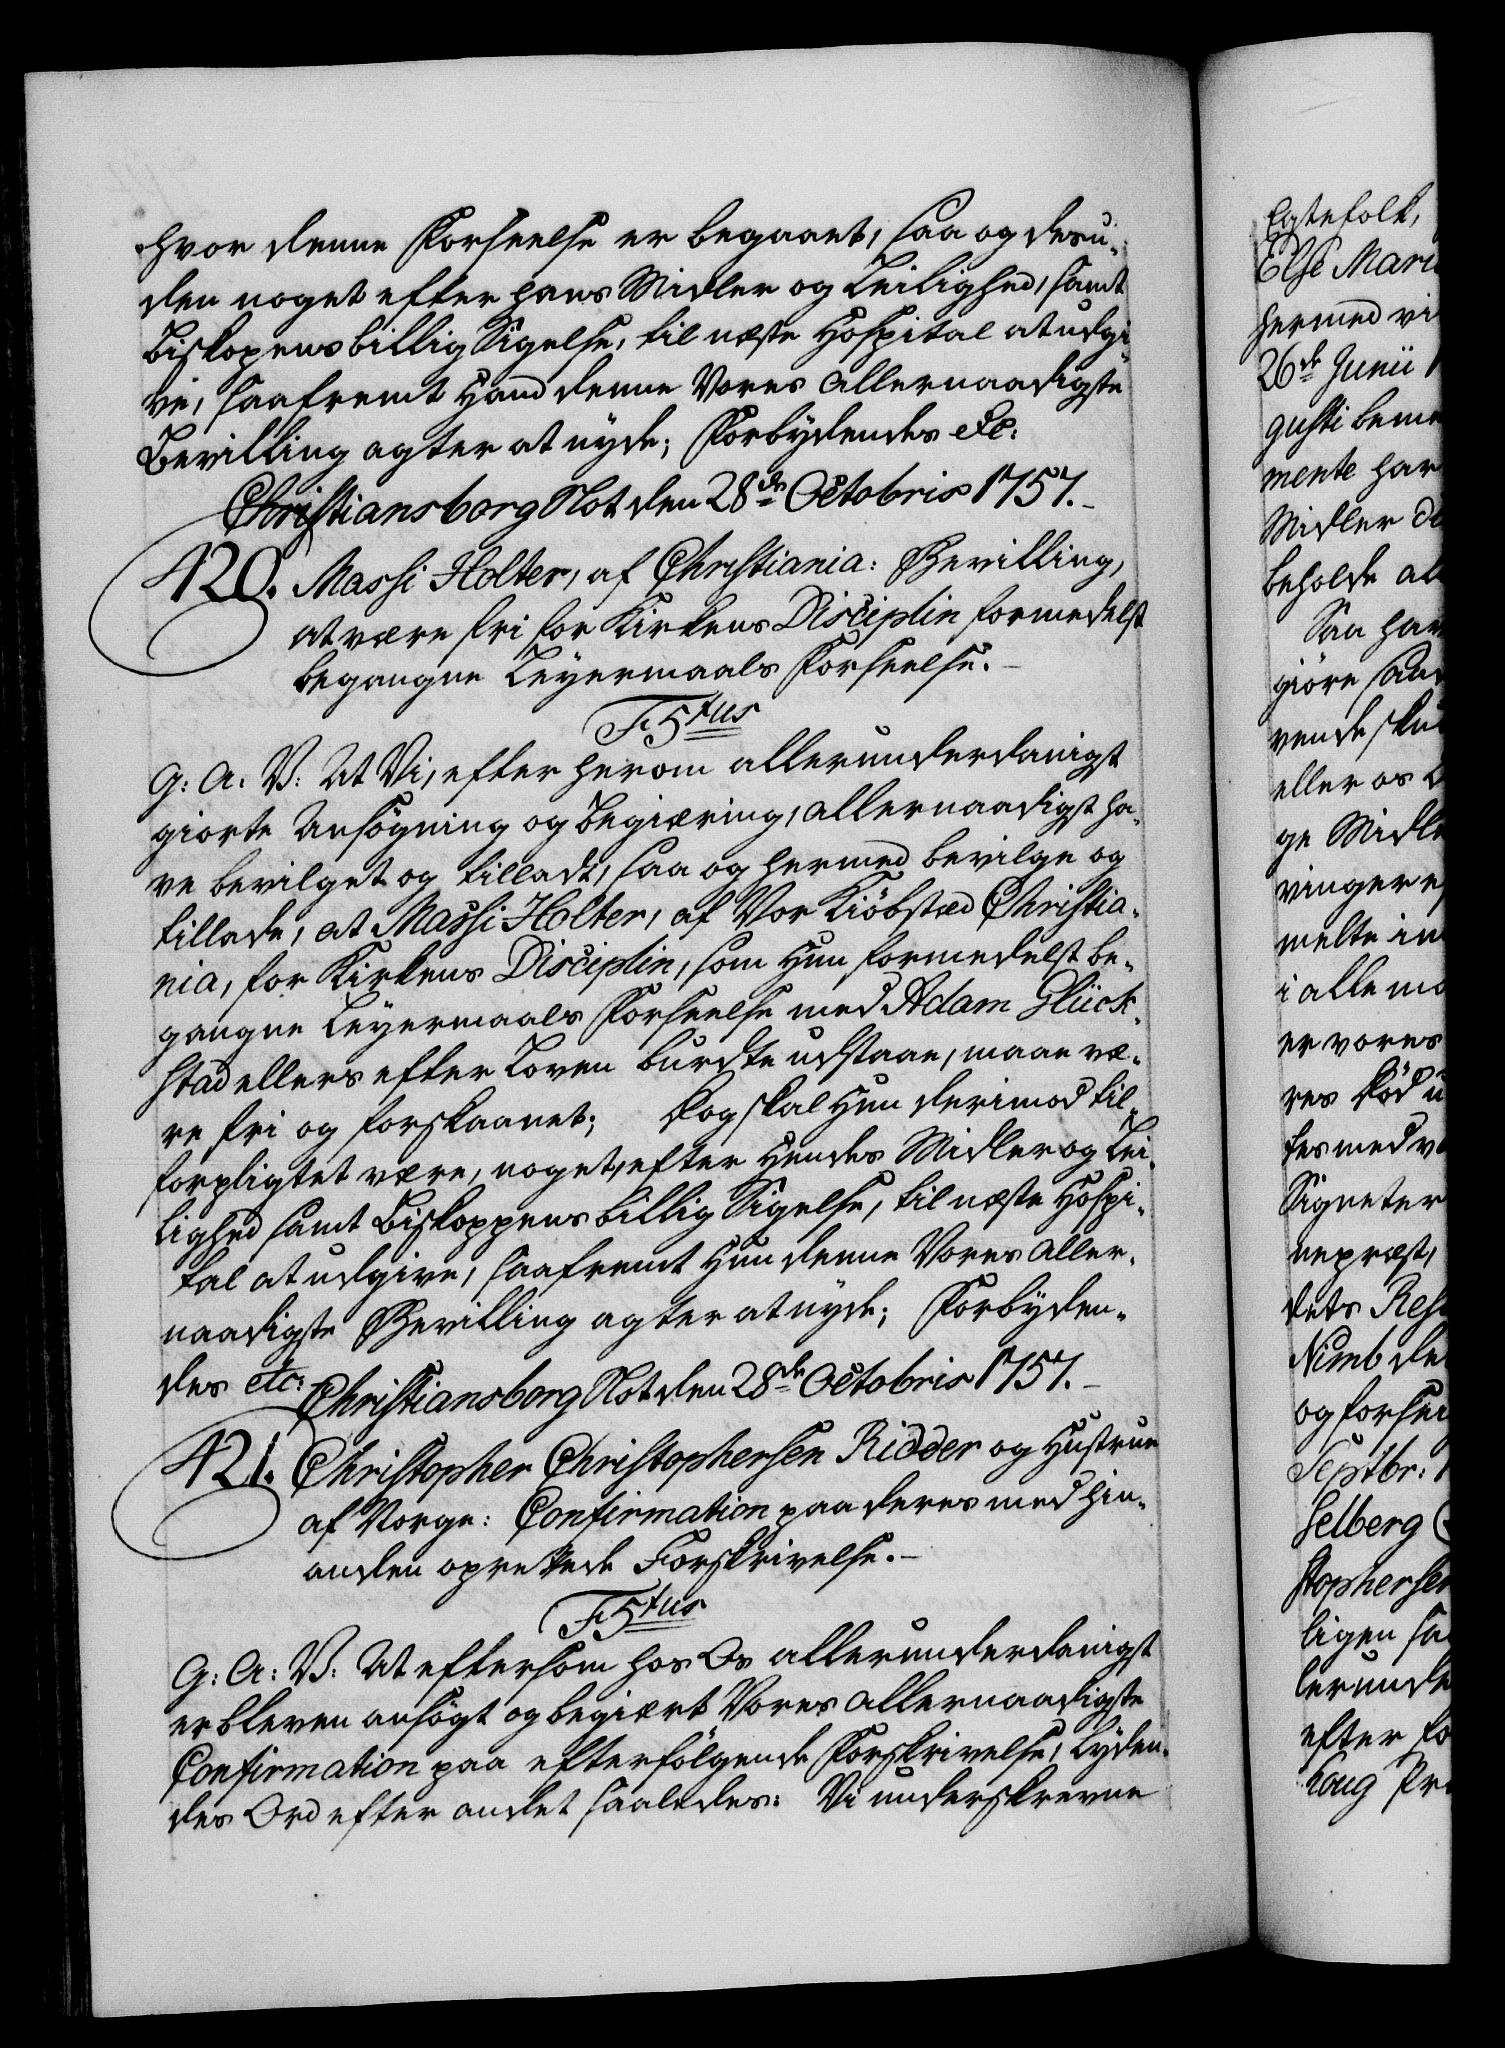 hvor denne Forseelse er begaaet, saa og desu-
den noget efter hans Midler og Leilighed, samt
Biskopens billig Sigelse, til næste Hospital at udgi-
ve, saafremt Hand denne Vores allernaadigste
Bevilling agter at nyde; Forbydendes etc:
Christiansborg Slot den 28de Octobris 1757.
420. Massi Holter, af Christiania: Bevilling,
at være fri for Kirkens Disciplin formedelst
begangne Leyermaals Forseelse.
F. 5tus
G: A: V: At Vi, efter herom allerunderdanigst
giorte Ansögning og Begiæring, allernaadigst ha-
ve bevilget og tilladt, saa og hermed bevilge og
tillade, at Massi Holter, af Vor Kiöbstæd Christia-
nia, for Kirkens Disciplin, som Hun formedelst be-
gangne Leyermaals Forseelse med Adam Glück-
stad ellers efter Loven burdte udstaae, maae væ-
re fri og forskaanet; Dog skal Hun derimod til-
forpligtet være, noget, efter Hendes Midler og Lei-
lighed samt Biskoppens billig Sigelse, til næste Hospi-
tal at udgive, saafremt Hun denne Vores Aller-
naadigste Bevilling agter at nyde; Forbyden-
des etc:
Christiansborg Slot den 28de Octobris 1757.
421. Christopher Christophersen Ridder og Hustrue
af Norge: Confirmation paa deres med hin-
anden oprettede Forskrivelse.
F. 5tus
G: A: V: At eftersom hos Os allerunderdanigst
er bleven ansögt og begiært Vores allernaadigste
Confirmation paa efterfölgende Forskrivelse, lyden-
des Ord efter andet saaledes: Vi underskrevne
Egtefolk,
Else Mari
hermed vi
26de Junii
gusti
mente har
Midler
beholde al
Saa har
giöre
vende
eller os
ge Midl
vinger
melte in
i alle
er vores
res Död
tes med
Signeter
nepræst,
dets
Nimb de
og
Septbr:
selberg
stophersen
ligen sa
lerunde
efter fo